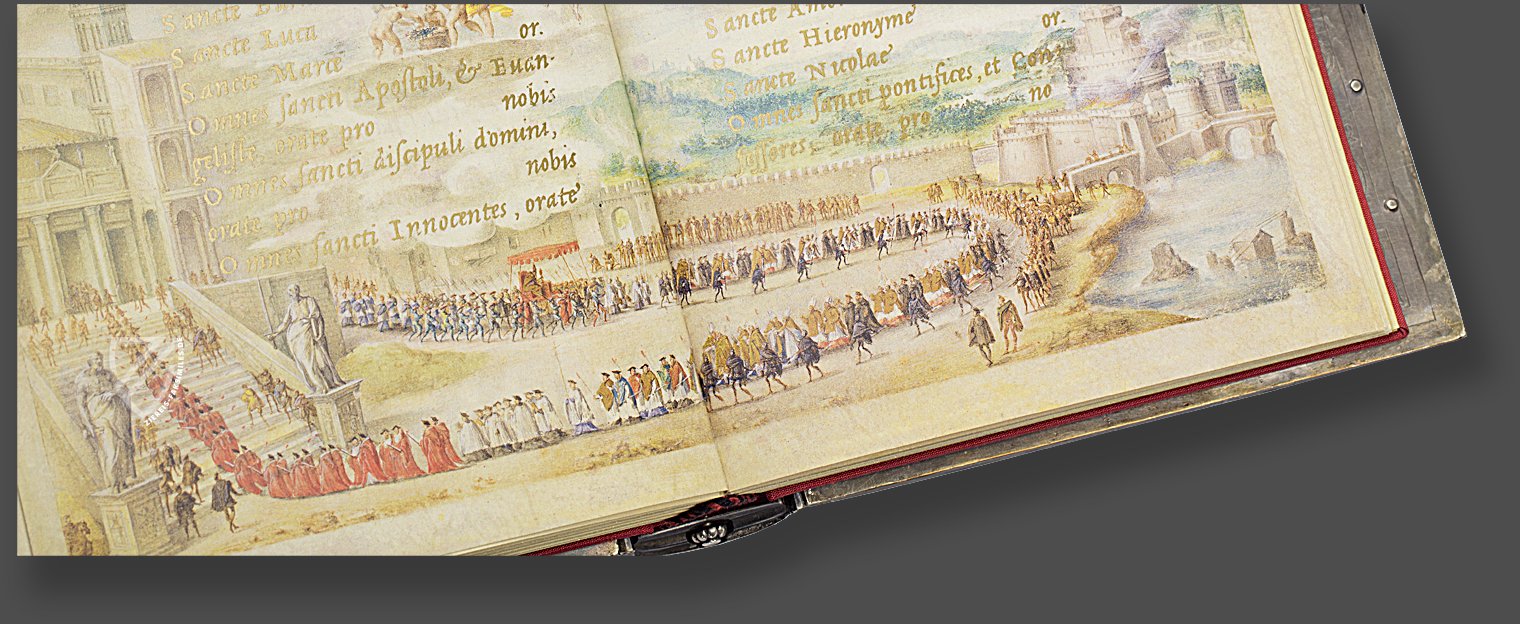 Sancte Luca
Sancte Marce
or.
Omnes ſancti Apoſtoli, & Euan-
geliſte, orate pro
nobis
Omnes ſancti diſcipuli domini,
orate pro
nobis
Omnes ſancti Innocentes, orate
Sancte
Sancte Hieronyme
or.
Sancte Nicolae
Omnes ſancti pontifices, et Con-
feſſores, orate pro
no